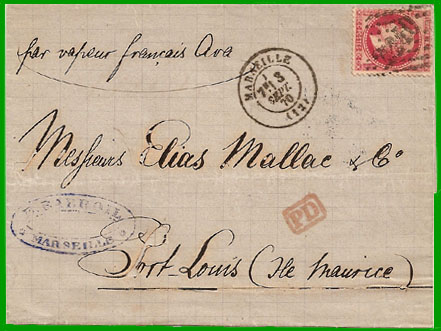 par vapeur francais Ava
MARSEILLE
3
SEPT.
70
(12)
Messieurs Elias Mallac & Co
PD
MARSEILLE
Port-Louis (Ile Maurice)